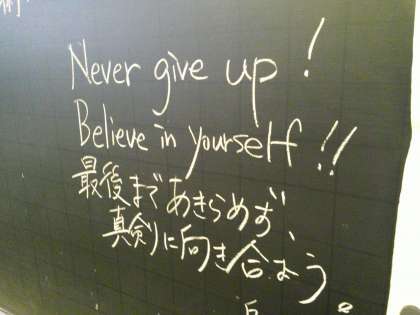 Never give up!
Believe in yourself!!
最後まであきらめず、
真剣に向き合おう。